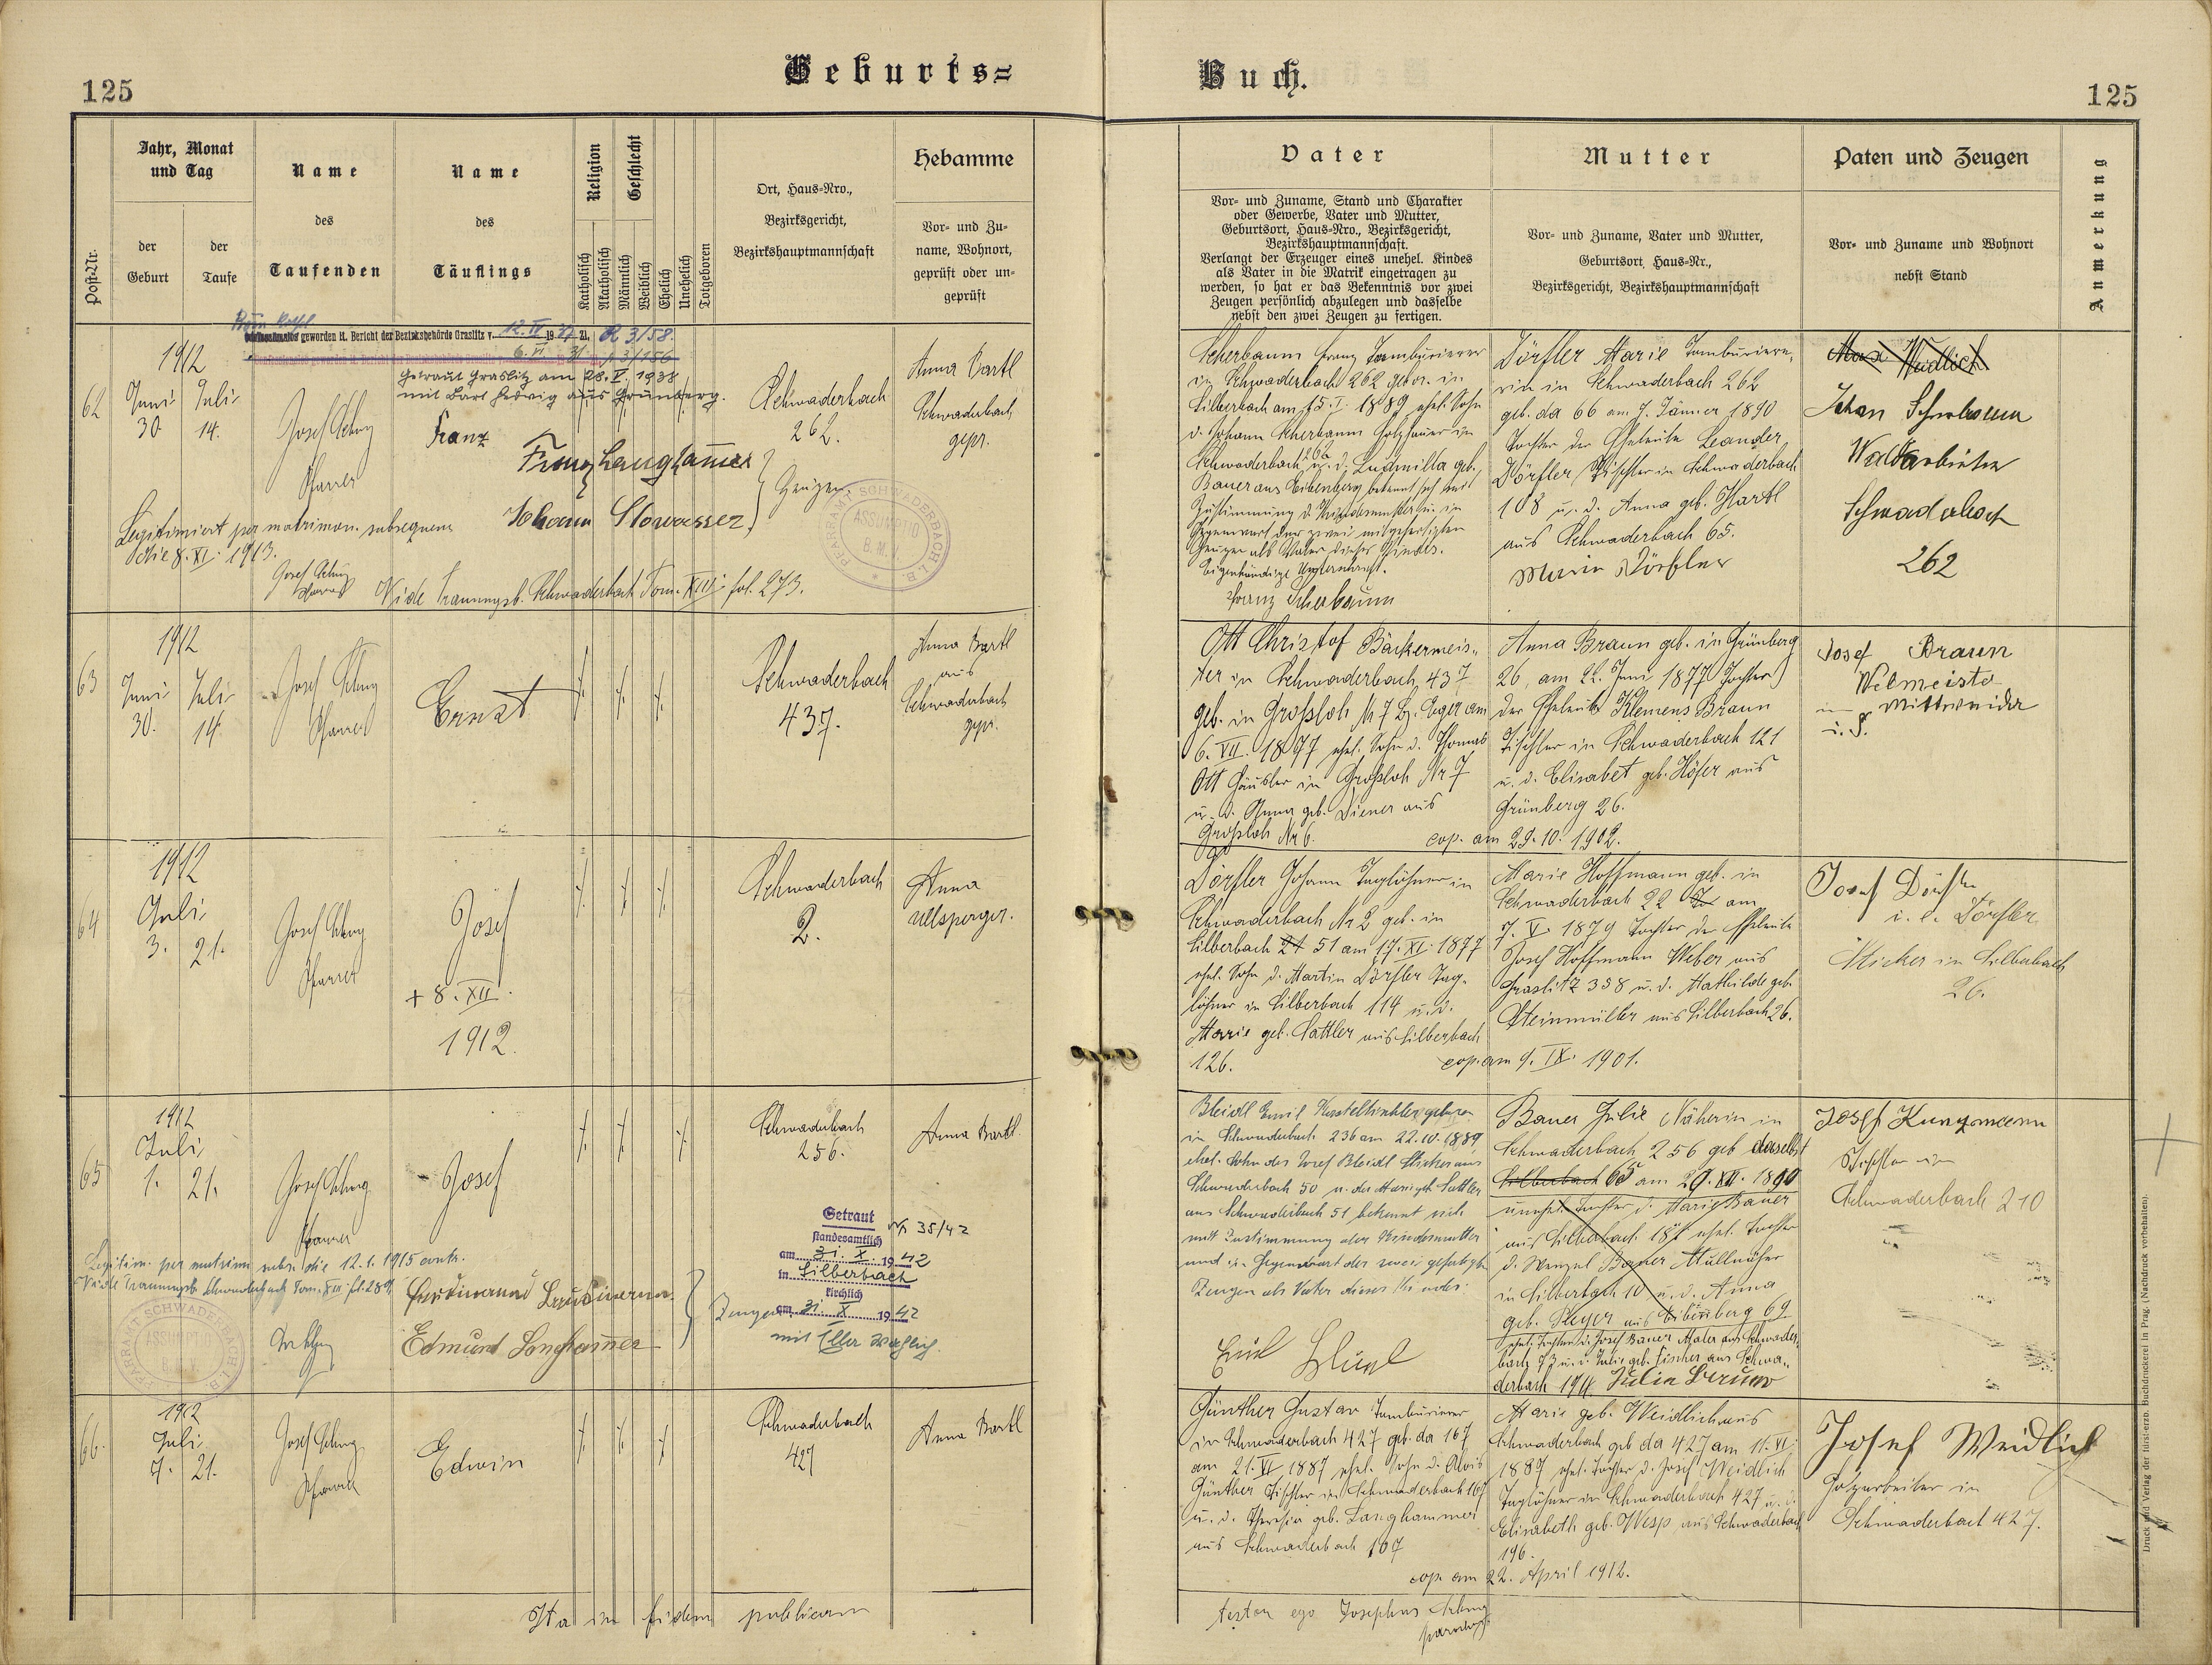 125
Geburts=
Buch.
125
Post-Nr.
Jahr, Monat
und Tag
der
Geburt
der
Taufe
Name
des
Taufenden
Name
des
Täuflings
Religion
Geschlecht
Katholisch
Akatholisch
Männlich
Weiblich
Ehelich
Unehelich
Totgeboren
Ort, Haus=Nro.,
Bezirksgericht,
Bezirkshauptmannschaft
Hebamme
Vor= und Zu=
name, Wohnort,
geprüft oder un=
geprüft
Vater
Vor= und Zuname, Stand und Charakter
oder Gewerbe, Vater und Mutter,
Geburtsort, Haus=Nro., Bezirksgericht,
Bezirkshauptmannschaft.
Verlangt der Erzeuger eines unehel. Kindes
als Vater in die Matrik eingetragen zu
werden, so hat er das Bekenntnis vor zwei
Zeugen persönlich abzulegen und dasselbe
nebst den zwei Zeugen zu fertigen.
Mutter
Vor= und Zuname, Vater und Mutter,
Geburtsort, Haus=Nr.,
Bezirksgericht, Bezirkshauptmannschaft
Paten und Zeugen
Vor= und Zuname und Wohnort
nebst Stand
Anmerkung
geworden lt. Bericht der Bezirksbehörde Graslitz v. 12. IV 19 Zl. R 3/58.
getraut Graslitz am 28. V. 1938
mit Bartl Hedwig aus Grünberg.
62
1912
Juni
30
Juli
14.
Josef
Pfarrer
Franz
Franz Langhammer
Johann Stowasser
Zeugen
Schwaderbach
262.
Anna Bartl
Schwaderbach
gepr.
Legitimiert per matrimon. subsequens
die 8. XI. 1913.
Vide Trauungsb. Schwaderbach Tom. XIII fol. 273.
PFARRAMT SCHWADERBACH I.B.
ASSUMPTIO
B.M.V.
Scherbaum Franz Tambourierer
in Schwaderbach 262 gebor. in
Silberbach am 15. I. 1889, ehel. Sohn
d. Johann Scherbaum Holzhauer in
Schwaderbach 262 u. d. Ludmilla geb.
Bauer aus Eibenberg bekennt sich mit
Zustimmung d. Kindesmutter u. in
Gegenwart der zwei mitgefertigten
Zeugen als Vater dieses Kindes.
Eigenhändige Unterschrift.
Franz Scherbaum
Dörfler Marie Tambouriere=
rin in Schwaderbach 262
geb. da 66 am 7. Jänner 1890
Tochter der Eheleute Leander
Dörfler Tischler in Schwaderbach
108 u. d. Anna geb. Hartl
aus Schwaderbach 65.
Marie Dörfler
Max Weidlich
Johan Scherbaum
Waldarbeiter
Schwaderbach
262
63
1912
Juni
30.
Juli
14.
Josef
Pfarrer
Ernst
Schwaderbach
437.
Anna Bartl
aus
Schwaderbach
gepr.
Ott Christof Bäckermeis=
ter in Schwaderbach 437
geb. in Großloh N 7 Bz. Eger am
6. VII. 1877 ehel. Sohn d. Thomas
Ott Häusler in Großloh Nr 7
u. d. Anna geb. Diener aus
Großloh Nr 6.
Anna Braun geb. in Grünberg
26, am 22. Juni 1877 Tochter
der Eheleute Klemens Braun
Tischler in Schwaderbach 121
u. d. Elisabet geb. Höfer aus
Grünberg 26.
cop. am 29. 10. 1902.
Josef Braun
in Mittweida
i. S.
64
1912
Juli
3.
21.
Josef
Pfarrer
Josef
+ 8. XII.
1912.
Schwaderbach
2.
Anna
Ullsperger.
Dörfler Johann Taglöhner in
Schwaderbach Nr 2 geb. in
Silberbach 21 51 am 17. XI. 1877
ehel. Sohn d. Martin Dörfler Tag=
löhner in Silberbach 114 u. d.
Marie geb. Sattler aus Silberbach
126.
Marie Hoffmann geb. in
Schwaderbach 22 am
7. V. 1879 Tochter der Eheleute
Josef Hoffmann Weber aus
Graslitz 338 u. d. Mathilde geb.
Steinmüller aus Silberbach 26.
cop. am 9. IX. 1901.
Josef Dörfler
Sticker in Silberbach
26.
65
1912
Juli
1.
21.
Josef
Pfarrer
Josef
Schwaderbach
256.
Anna Bartl
Legitim. per matrim. subs. die 12. 1. 1915
Vide Trauungsb. Schwaderbach Tom. XIII fol. 289
Edmund Langhammer
Zeugen
Getraut Nr 35/42
standesamtlich
am 31. X. 1942
in Silberbach
kirchlich
am 31. X. 1942
Bleidl Emil
in Schwaderbach 236 am 22. IV. 1889
ehel. Sohn des Josef Bleidl Sticker aus
Schwaderbach 50 u. der Marie geb. Sattler
aus Schwaderbach 51 bekennt sich
mit Zustimmung der Kindesmutter
und in Gegenwart der zwei gefertigten
Zeugen als Vater dieses Kindes.
Bauer Julie Näherin in
Schwaderbach 256 geb. daselbst
Silberbach 65 am 29. XII. 1890
unehel. Tochter d. Marie Bauer
aus Silberbach 187 ehel. Tochter
d. Wenzel Bauer
in Silberbach 10 u. d. Anna
geb. aus Eibenberg 69
ehel. Tochter d. Josef Bauer Maler aus Schwader=
bach 73 u. d. Julie geb. Fischer aus Schwa=
derbach 194.
Josef Kunzmann
Tischler in
Schwaderbach 210
66.
1912
Juli
7.
21.
Josef
Pfarrer
Edwin
Schwaderbach
427
Anna Bartl
Günther Gustav Tambourierer
in Schwaderbach 427 geb. da 167
am 21. VI 1887 ehel. Sohn d. Alois
Günther Tischler in Schwaderbach 167
u. d. Theresia geb. Langhammer
aus Schwaderbach 167
Marie geb. Weidlich aus
Schwaderbach geb. da 427 am 11. VI.
1889 ehel. Tochter d. Josef Weidlich
Taglöhner in Schwaderbach 427 u. d.
Elisabeth geb. Wesp aus Schwaderbach
196.
cop. am 22. April 1912.
Josef Weidlich
Holzarbeiter in
Schwaderbach 427.
Ita in fidem publicam
testor ego Josephus
parochus
Druck und Verlag der fürst-erzb. Buchdruckerei in Prag. (Nachdruck vorbehalten).